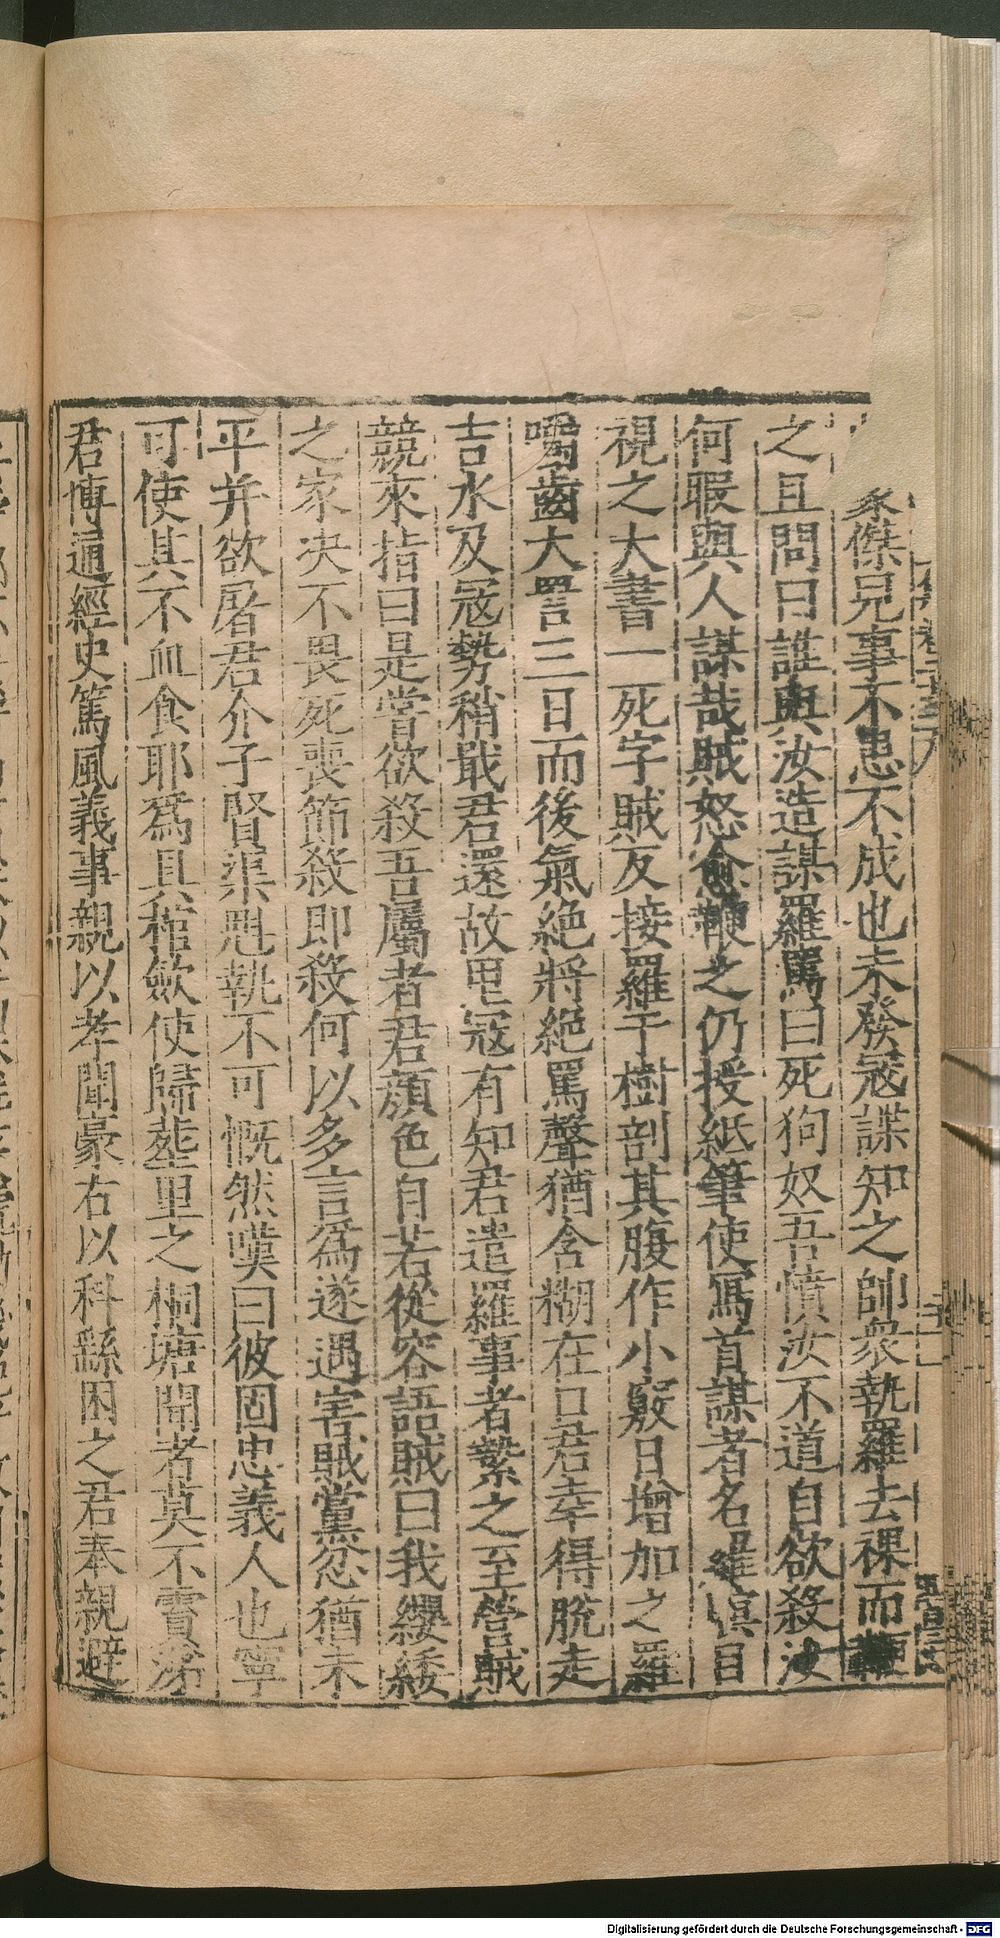 豪傑兄事不患不成也未發寇諜知之帥衆執羅去裸而鞭
之且問曰誰與汝造謀羅罵曰死狗奴吾憤汝不道自欲殺汝
何暇與人謀哉賊怒愈鞭之仍授紙筆使寫首謀者名羅瞋目
視之大書一死字賊反接羅于樹剖其腹作小竅日增加之羅
嚼齒大詈三日而後氣絶將絶罵聲猶含糊在口君幸得脫走
吉水及寇勢稍戢君還故里寇有知君遣羅事者縶之至營賊
競來指曰是嘗欲殺吾屬者君顔色自若從容語賊曰我纓緌
之家决不畏死喪節殺即殺何以多言爲遂遇害賊黨忿猶未
平并欲屠君介子賢渠魁執不可慨然嘆曰彼固忠義人也寧
可使其不血食耶爲具棺歛使歸塟里之桐塘聞者莫不霣涕
君博通經史篤風義事親以孝聞豪右以科繇困之君奉親避
Digitalisierung gefördert durch die Deutsche Forschungsgemeinschaft - DFG